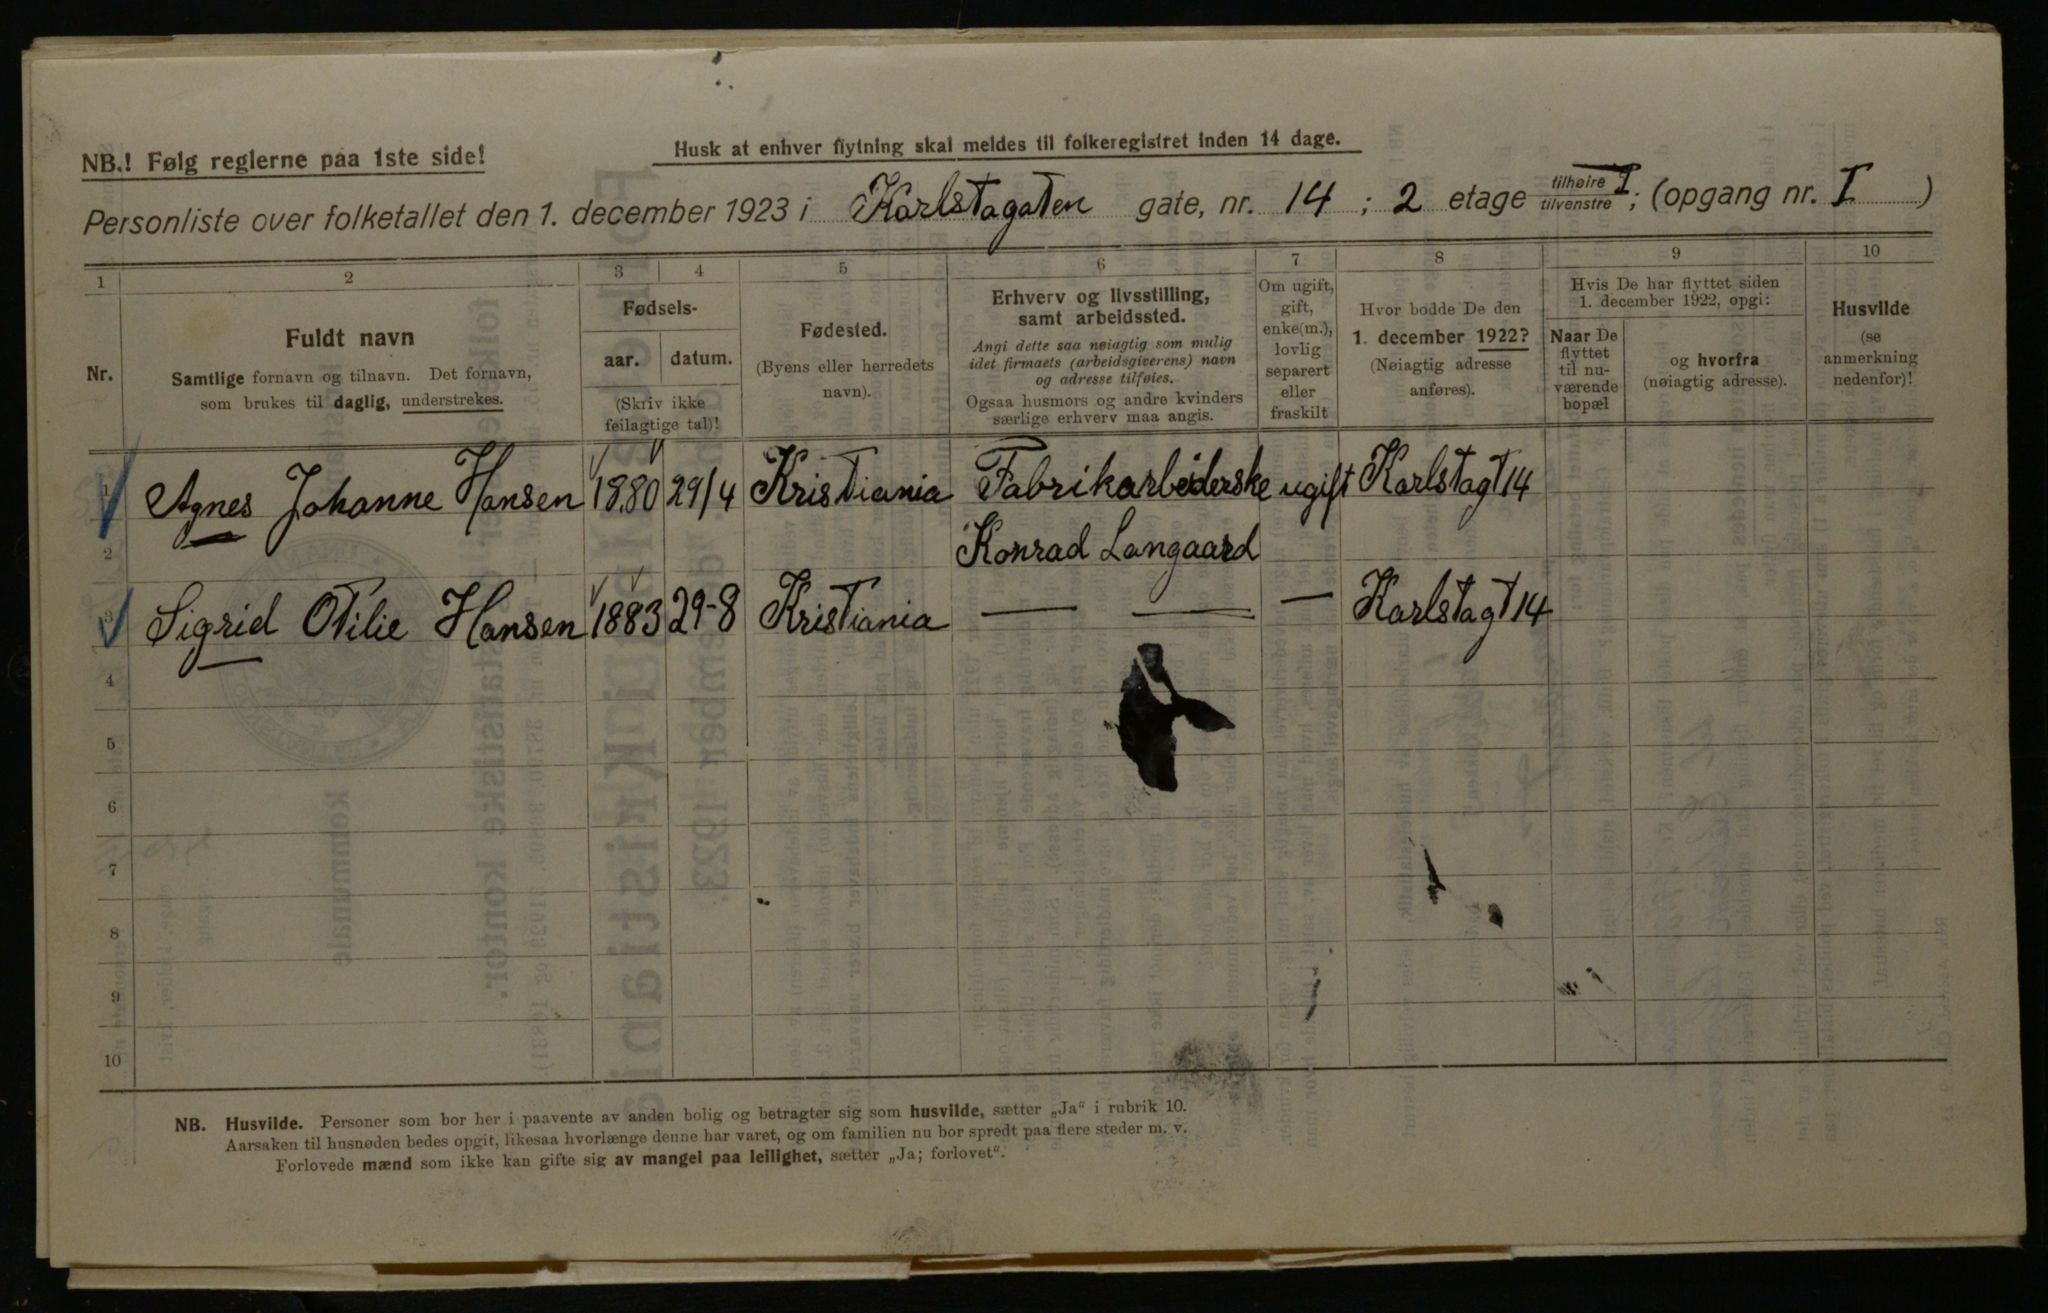 NB.! Følg reglerne paa 1ste side!
Husk at enhver flytning skal meldes til folkeregistret inden 14 dage.
Personliste over folketallet den 1. december 1923 i Karlstagaten gate, nr. 14 ; 2 etage tilhøire I ; (opgang nr. I )
tilvenstre
1 2 3 4 5 6 7 8 9 10
Nr.
Fuldt navn
Samtlige fornavn og tilnavn. Det fornavn,
som brukes til daglig, understrekes.
Fødsels-
aar. datum.
(Skriv ikke
feilagtige tal)!
Fødested.
(Byens eller herredets
navn).
Erhverv og livsstilling,
samt arbeidssted.
Angi dette saa nøiagtig som mulig
idet firmaets (arbeidsgiverens) navn
og adresse tilføies.
Ogsaa husmørs og andre kvinders
særlige erhverv maa angis.
Om ugift,
gift,
enke(m.),
lovlig
separert
eller
fraskilt
Hvor bodde De den
1. december 1922?
(Nøiagtig adresse
anføres).
Hvis De har flyttet siden
1. december 1922, opgi:
Naar De
flyttet
til nu-
værende
bopæl
og hvorfra
(nøiagtig adresse).
Husvilde
(se
anmerkning
nedenfor)!
1 Agnes Johanne Hansen 1880 29/4 Kristiania Fabrikarbeiderske ugift Karlstagt 14
2 Konrad Langaard
3 Sigrid Otilie Hansen 1883 29-8 Kristiania — — — Karlstagt 14
4
5
6
7
8
9
10
NB. Husvilde. Personer som bor her i paavente av anden bolig og betragter sig som husvilde, sætter „Ja“ i rubrik 10.
Aarsaken til husnøden bedes opgit, likesaa hvorlænge denne har varet, og om familien nu bor spredt paa flere steder m. v.
Forlovede mænd som ikke kan gifte sig av mangel paa leilighet, sætter „Ja; forlovet“.